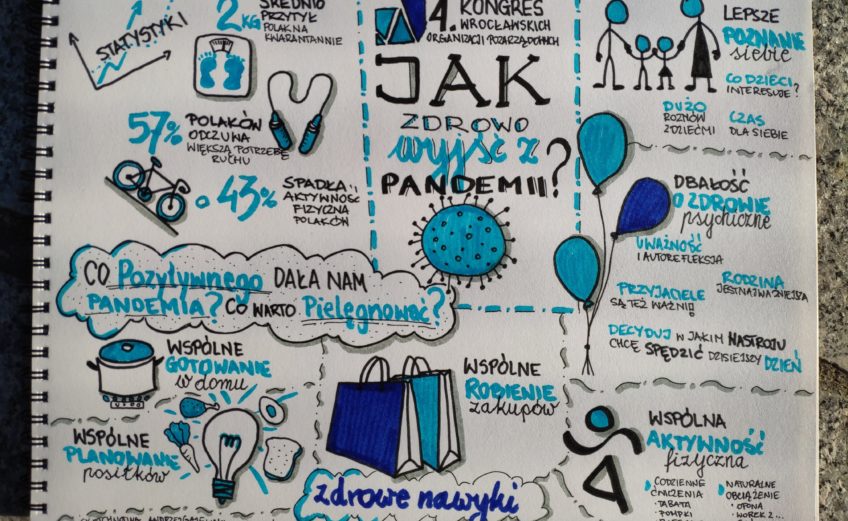 STATYSTYKI
ŚREDNIO
2 KG PRZYTYŁ
POLAK NA
KWARANTANNIE
57% POLAKÓW
ODCZUWA
WIĘKSZĄ POTRZEBĘ
RUCHU
O 43% SPADŁA
AKTYWNOŚĆ
FIZYCZNA
POLAKÓW
4. KONGRES
WROCŁAWSKICH
ORGANIZACJI POZARZĄDOWYCH
JAK
ZDROWO
wyjść z
PANDEMII?
LEPSZE
POZNANIE
siebie
CO DZIECI
INTERESUJE?
DUŻO
ROZMÓW
Z DZIEĆMI
CZAS
DLA SIEBIE
DBAŁOŚĆ
O ZDROWIE
psychiczne
UWAŻNOŚĆ
I AUTOREFLEKSJA
RODZINA
JEST NAJWAŻNIEJSZA
PRZYJACIELE
SĄ TEŻ WAŻNI!!
DECYDUJ W JAKIM NASTROJU
CHCĘ SPĘDZIĆ DZISIEJSZY DZIEŃ
CO Pozytywnego DAŁA NAM
PANDEMIA? CO WARTO Pielęgnować?
WSPÓLNE
GOTOWANIE
w domu
WSPÓLNE
PLANOWANIE
posiłków
WSPÓLNE
ROBIENIE
zakupów
zdrowe nawyki
WSPÓLNA
AKTYWNOŚĆ
fizyczna
CODZIENNE
ĆWICZENIA
- TABATA
- POMPKI
NATURALNE
OBCIĄŻENIE
- OPONA
- WOREK Z...